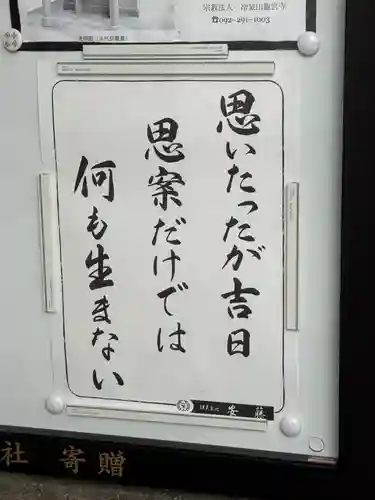 宗教法人 冷泉山龍宮寺
☎092-291-1003
思いたったが吉日
思案だけでは
何も生まない
安藤
社寄贈